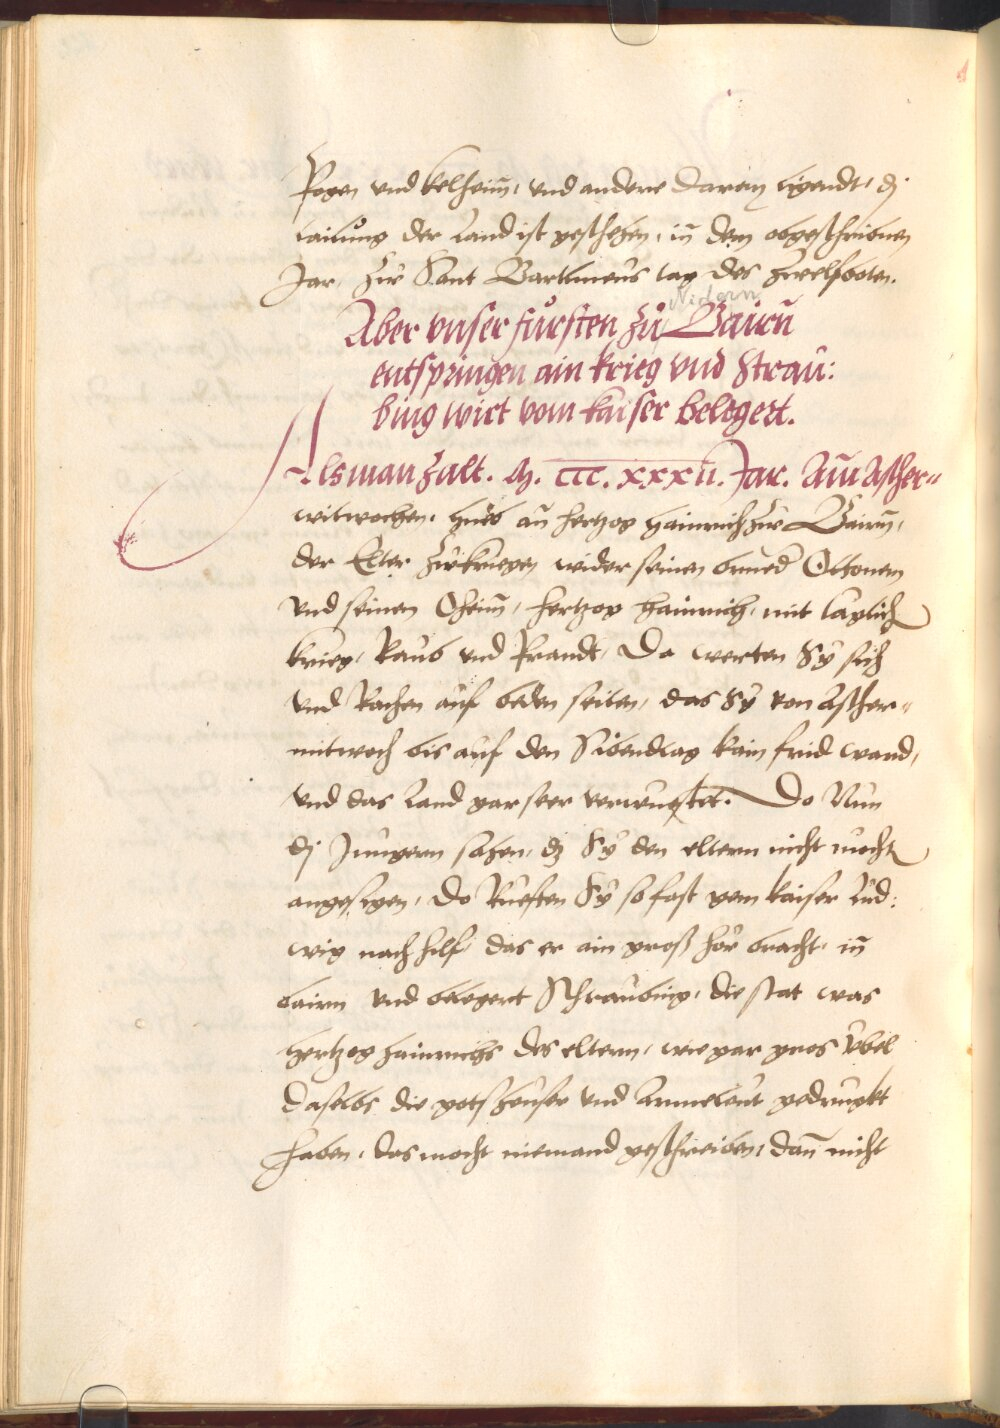 Pogen vnd kelheim, vnd andere darein ligendt, dj
tailung der Land ist geschehen, in dem obgeschribnen
Jar, zu Sant Bartlmeus tag des zwelfboten.
Nidern
Aber vnser fürsten zů Bairn
entspringen ain krieg vnd Strau:
bing wirt vom kaiser belegert.
Als man zalt. M. CCC. xxxij. Jar. Am Ascher=
mitwochen, hueb an hertzog Hainrich zu Bairn,
der Elter zu kriegen wider seinen brueder Ottonem
vnd seinen Oheim, hertzog Hainrich, mit täglich
krieg, Raub vnd Prandt, Da werten Sÿ sich
vnd Rachen auf beden seiten, das Sÿ von Ascher=
mitwoch bis auf den Sibendtag kain frid wand,
vnd das Land gar seer verwuestet. Do Nun
dj Jungern sahen, dz Sÿ den eltern nicht mocht
angesigen, Do Rueften Sÿ so fast gem kaiser Lud:
wig nach hilf, das er ain groß hör bracht, in
bairn vnd belegert Straubing, die stat was
hertzog hainrichs des eltern, wie gar gros vbel
daselbs die gotshewser vnd Armeleut gedruckt
haben, das mocht niemand geschreiben, dan nicht